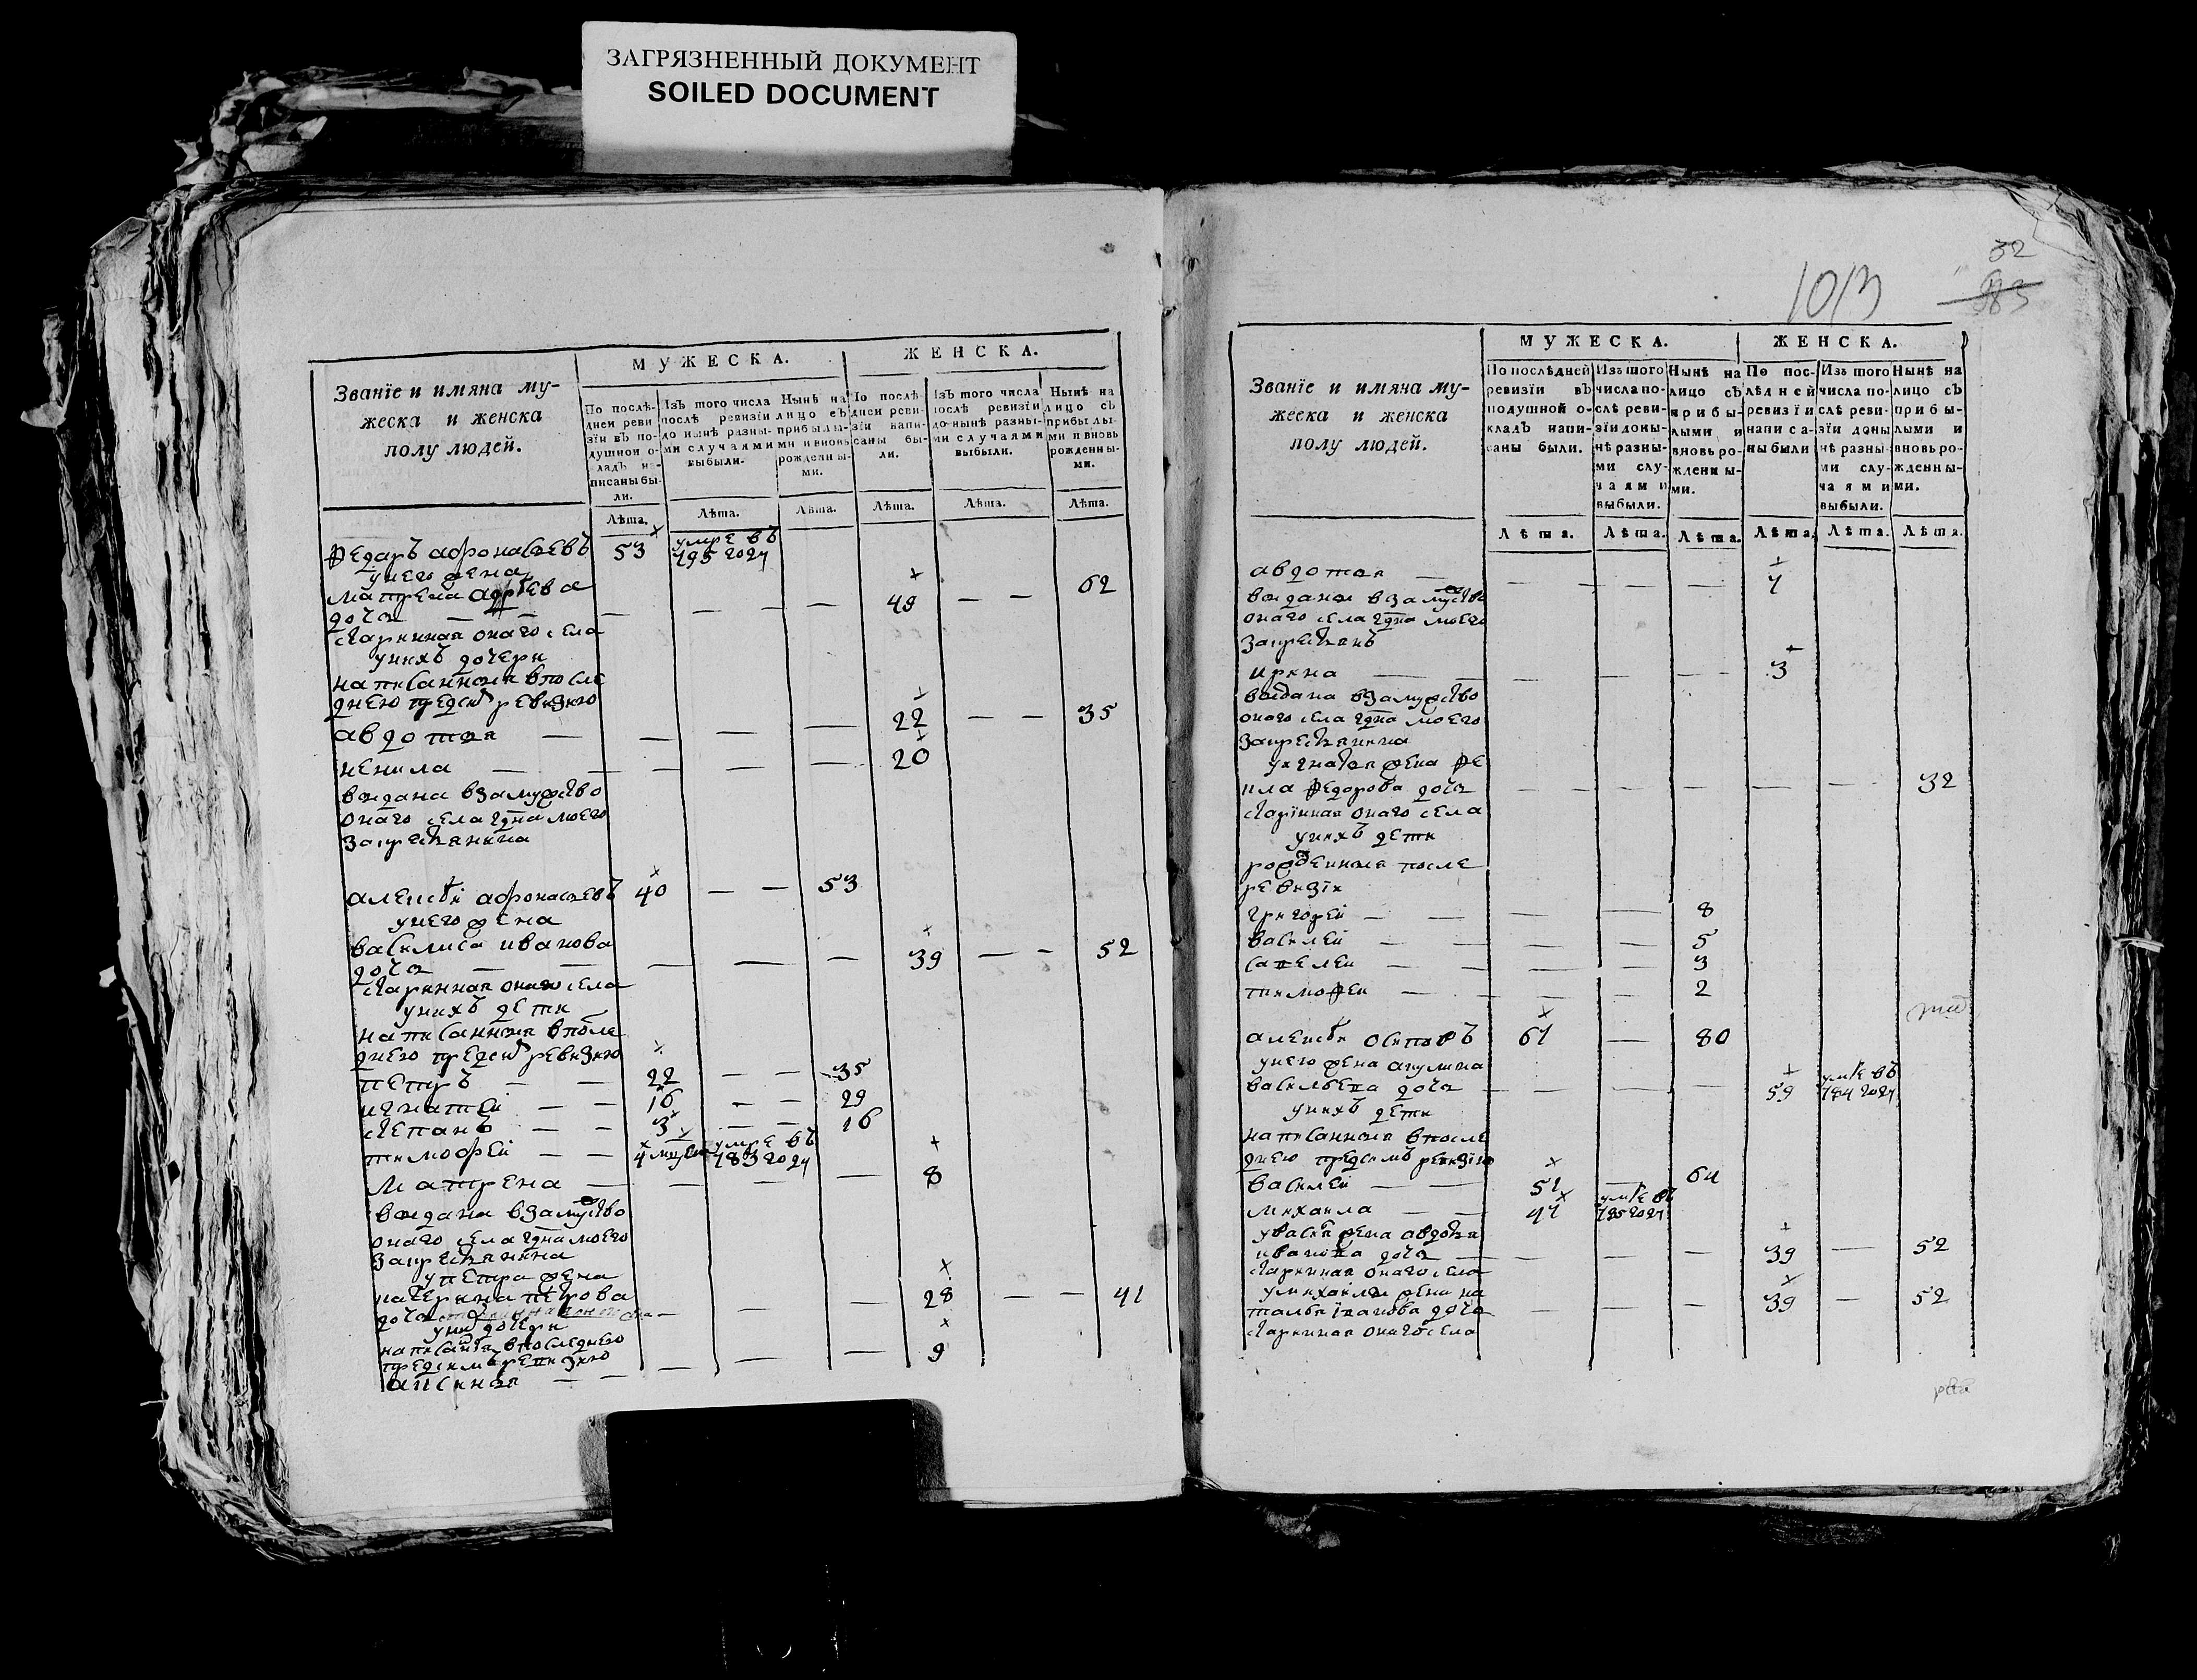 ЗАГРЯЗНЕННЫЙ ДОКУМЕНТ
SOILED DOCUMENT
Званїе и имяна му-
жеска и женска
полу людей.
МУЖЕСКА.
ЖЕНСКА.
По послѣ-
дней реви
зїи въ по-
душной о-
кладъ на-
писаны бы-
ли.
Изъ того числа
послѣ ревизїи
до нынѣ разны-
ми случаями
выбыли.
Нынѣ на
лицо съ
прибылы-
ми и вновь
рожденны-
ми.
По послѣ-
дней реви-
зїи напи-
саны бы-
ли.
Изъ того числа
послѣ ревизїи
до нынѣ разны-
ми случаями
выбыли.
Нынѣ на
лицо съ
прибылы-
ми и вновь
рожденны-
ми.
Лѣта. Лѣта. Лѣта. Лѣта. Лѣта. Лѣта.
федаръ афонасьевъ 53 умре въ
795 году
у него жена
матрена 49 62
дочь
старинная онаго села
у нихъ дочери
написанныя в после
днею пред симъ ревизию
авдотья 22 35
ненила 20
выдана в замужство
онаго села гдна моего
за крестьянина
алексѣй афонасьевъ 40 53
у него жена
василиса иванова
дочь 39 52
старинная онаго села
у нихъ дети
написанныя в после
днею пред симъ ревизию
петръ 22 35
игнатей 16 29
степанъ 3 16
тимофей 4 умре въ
783 году
матрена 8
выдана в замуство
онаго села гдна моего
за крестьянина
у петра жена
катерина петрова
дочь 28 41
у них дочери
написаны в последнею
пред симъ ревизию
аксинья 9
1013
32
983
Званїе и имяна му-
жеска и женска
полу людей.
МУЖЕСКА.
ЖЕНСКА.
По послѣдней
ревизїи въ
подушной о-
кладъ напи-
саны были.
Изъ того
числа по-
слѣ реви-
зїи доны-
нѣ разны-
ми слу-
чаями
выбыли.
Нынѣ на
лицо съ
прибы-
лыми и
вновь ро-
жденны-
ми.
По пос-
лѣдней
ревизїи
написа-
ны были
Изъ того
числа по-
слѣ реви-
зїи доны
нѣ разны-
ми слу-
чаями
выбыли.
Нынѣ на
лицо съ
прибы-
лыми и
вновь ро-
жденны-
ми.
Лѣта. Лѣта. Лѣта. Лѣта. Лѣта. Лѣта.
авдотья 7
выдана в замуство
онаго села гдна моего
за крестьянъ
ирина 3
выдана в замужство
онаго села гдна моего
за крестьянина
у игнатья жена фе
кла федорова дочь 32
старїнная онаго села
у нихъ дети
рожденныя после
ревизїи
григорей 8
василей 5
савелей 3
тимофей 2
алексѣй осиповъ 67 80
у него жена акулина
васильева дочь 59 умре въ
784 году
у нихъ дети
написанныя в после
днею пред симъ ревизїю
василей 51 64
михаила 47 умре въ
795 году
у васил жена авдотья
иванова дочь 39 52
старинная онаго села
у михаилы жена на
талья їванова дочь 39 52
старинная онаго села